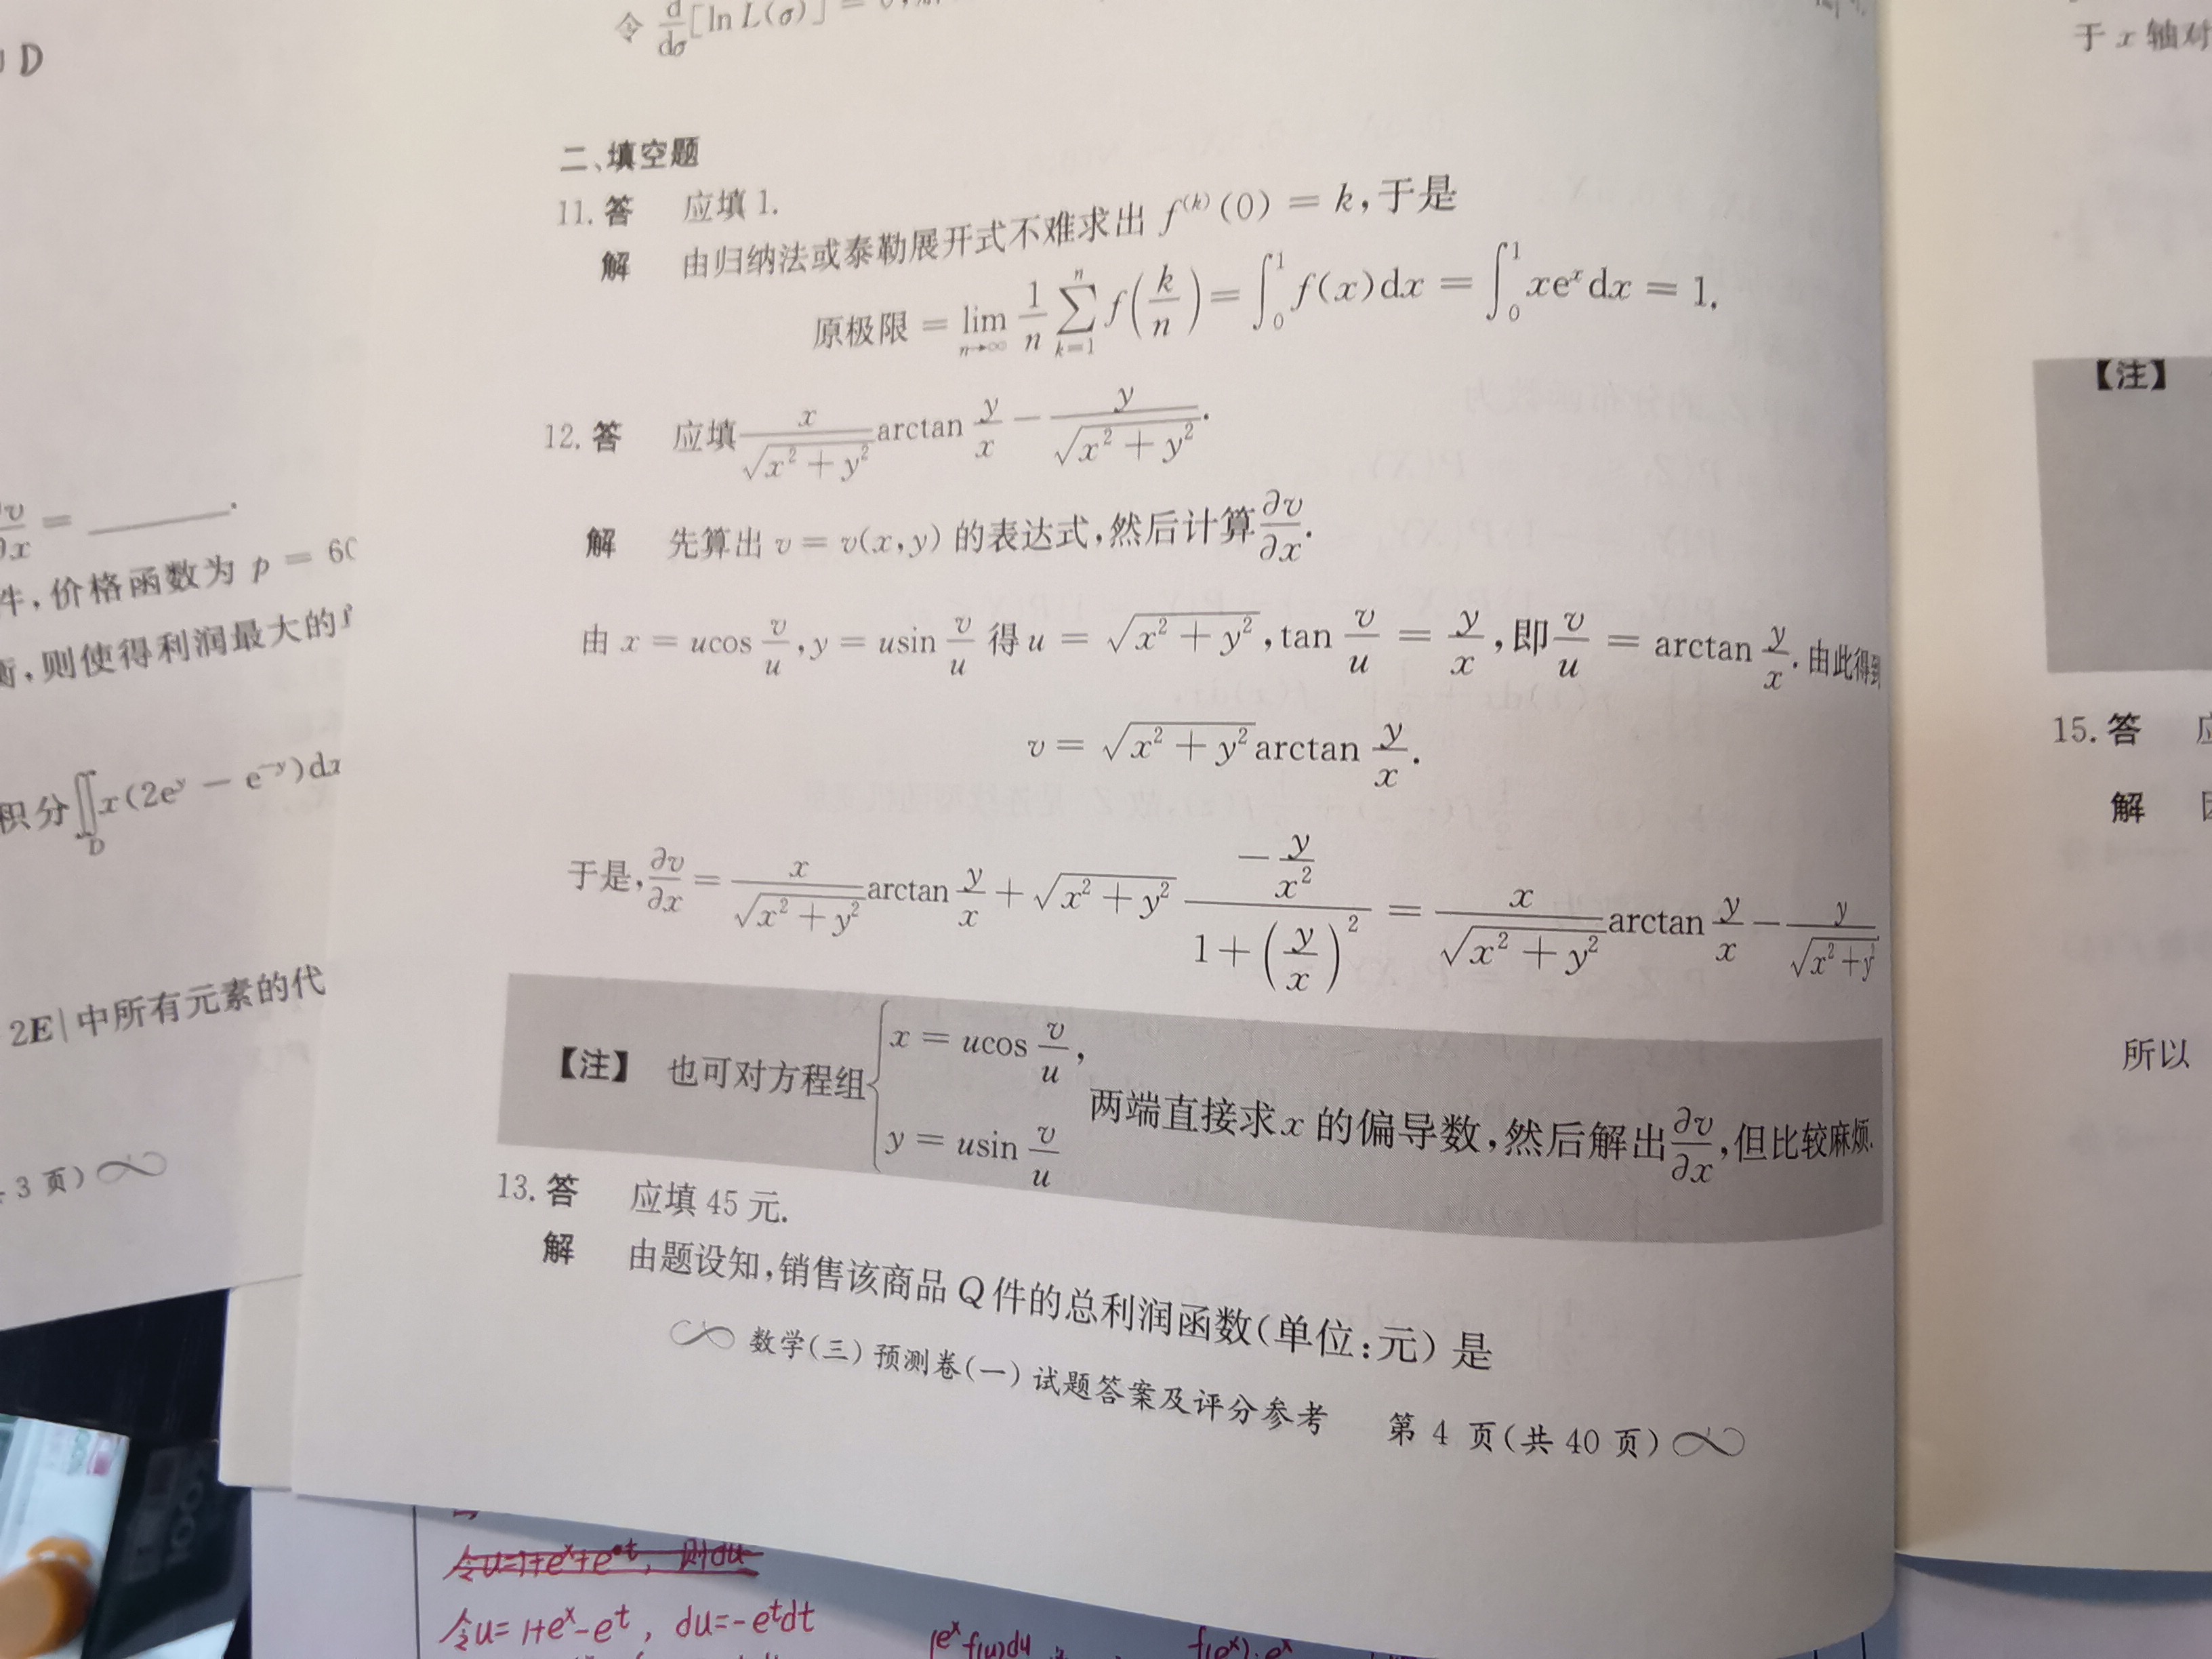 令 d/dσ[ln L(σ)] = 0
二、填空题
11. 答 应填 1.
解 由归纳法或泰勒展开式不难求出 f^(k)(0) = k, 于是
原极限 = lim_{n→∞} 1/n ∑_{k=1}^{n} f(k/n) = ∫_0^1 f(x)dx = ∫_0^1 xe^x dx = 1.
12. 答 应填 x/√(x²+y²) arctan y/x − y/√(x²+y²).
解 先算出 v = v(x,y) 的表达式, 然后计算 ∂v/∂x.
由 x = ucos v/u, y = usin v/u 得 u = √(x²+y²), tan v/u = y/x, 即 v/u = arctan y/x. 由此得到
v = √(x²+y²) arctan y/x.
于是, ∂v/∂x = x/√(x²+y²) arctan y/x + √(x²+y²) (−y/x²)/(1+(y/x)²) = x/√(x²+y²) arctan y/x − y/√(x²+y
【注】 也可对方程组 { x = ucos v/u, y = usin v/u 两端直接求 x 的偏导数, 然后解出 ∂v/∂x, 但比较麻烦.
13. 答 应填 45 元.
解 由题设知, 销售该商品 Q 件的总利润函数(单位:元) 是
数学(三) 预测卷(一) 试题答案及评分参考 第 4 页(共 40 页)
D
∂v/∂x = ______.
件, 价格函数为 p = 60
则使得利润最大的
积分 ∬_D x(2e^y − e^{−y})dx
2E| 中所有元素的代
3 页)
于 x 轴对
【注】
15. 答 应
解
所以
令u=1+e^x+e^t, 则du
令u= 1+e^x-e^t, du=-e^t dt
∫e^x f(u)du
f(e^x)·e^x
100